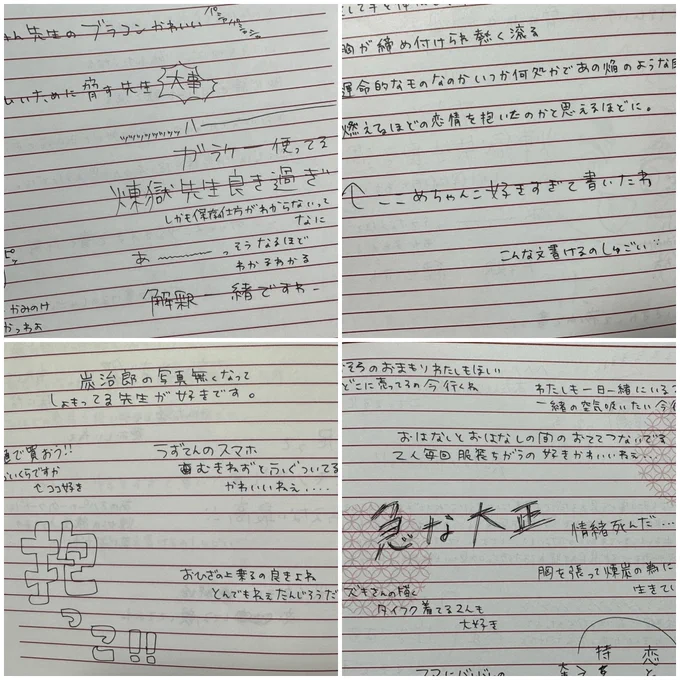 ゃん先生のブラコンかわいい
ために脅す先生 大事
ガラケー使ってる
煉獄先生良き過ぎ
しかも保存仕方がわからないって
なに
あ〜〜〜っそうなるほど
わかるわかる
解釈一緒ですわー
かみのけ
胸が締め付けられ熱く滾る
運命的なものなのかいつか何処かであの焔のような
燃えるほどの恋情を抱いたのかと思えるほどに。
↑ここめちゃんこ好きすぎて書いたわ
こんな文書けるのしゅごい
炭治郎の写真無くなって
しょもってる先生が好きです。
で買おう!!
いくらですか
↑ココ好き
うずてんのスマホ
歯むきねずとふぐついてる
かわいいねぇ....
抱っこ!!
おひざの上乗るの良きよね
とんでもねぇたんじろうだ
そろのおまもりわたしもほしい
どこに売ってるの今行くね
わたしも一日一緒にいる
一緒の空気吸いたい今
おはなしとおはなしの間のおててつないでる
2人毎回服装ちがうの好きかわいいねぇ...
急な大正 情緒死んだ...
胸を張って煉炭の為に
生きてい
ズキさんの描く
タイツク着てる2人も
大好き
恋
と
特